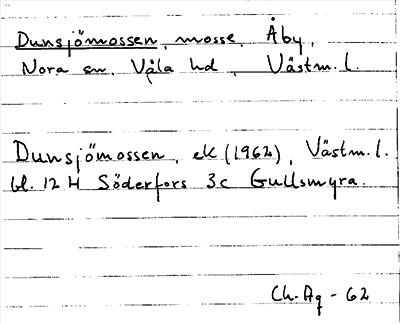 Dunsjömossen, mosse, Åby,
Nora sn, Våla hd, Västm. l.
Dunsjömossen, ek (1962), Västm. l.
bl. 12 H Söderfors 3c Gullsmyra.
Ch. Ag - 62